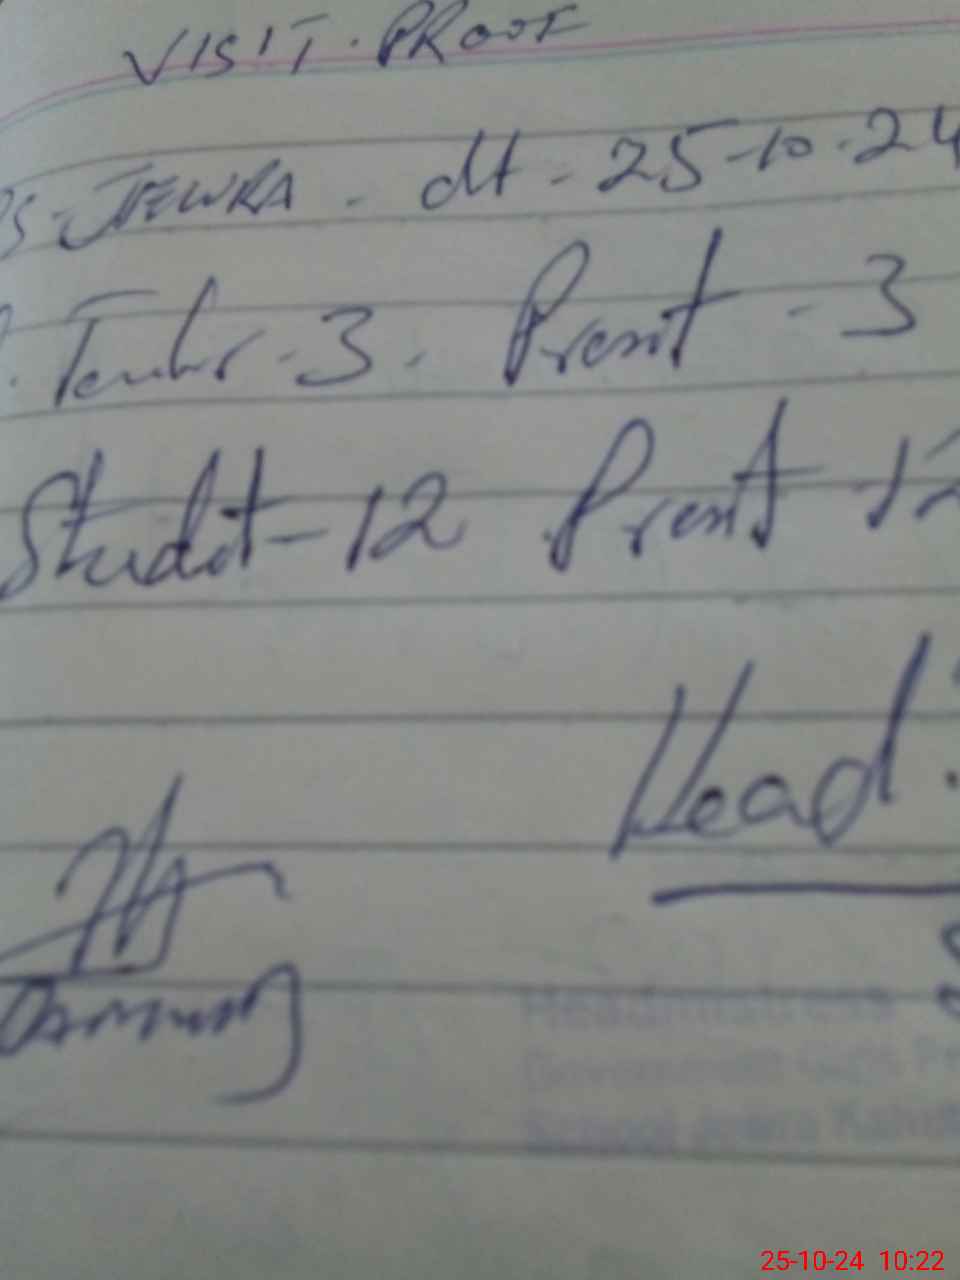 VISIT. PROOF
PS-JIEWRA - dt - 25-10-24
Teachr - 3. Presnt - 3
Studet - 12 Presnt 12
Head.
Headmistress
Government Girls
School
25-10-24 10:22